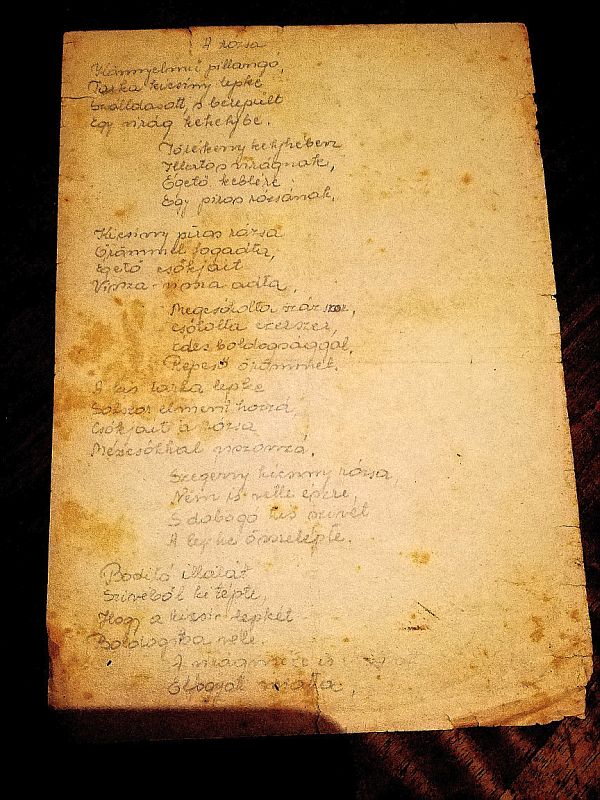 A rózsa
Könnyelmű pillangó,
Tarka kicsiny lepke
Szálldosott, s berepült
Egy virág kelyhébe.
Törékeny kelyhében
Illatos virágnak,
Égető keblére
Egy piros rózsának.
Kicsiny piros rózsa
Örömmel fogadta,
Égető csókjait
Vissza-vissza adta.
Megcsókolta százszor,
csókolta ezerszer,
Édes boldogsággal,
Repeső örömmel.
A kis tarka lepke
Sokszor elment hozzá,
Csókjait a rózsa
Mézcsókkal
Szegény kicsiny rózsa,
Nem is vette észre,
S dobogó kis szívét
A lepke összetépte.
Bódító illatát
Szívéből kitépte,
Hogy a kicsiny lepkét
Boldogítsa vele.
A is
Elfogyott